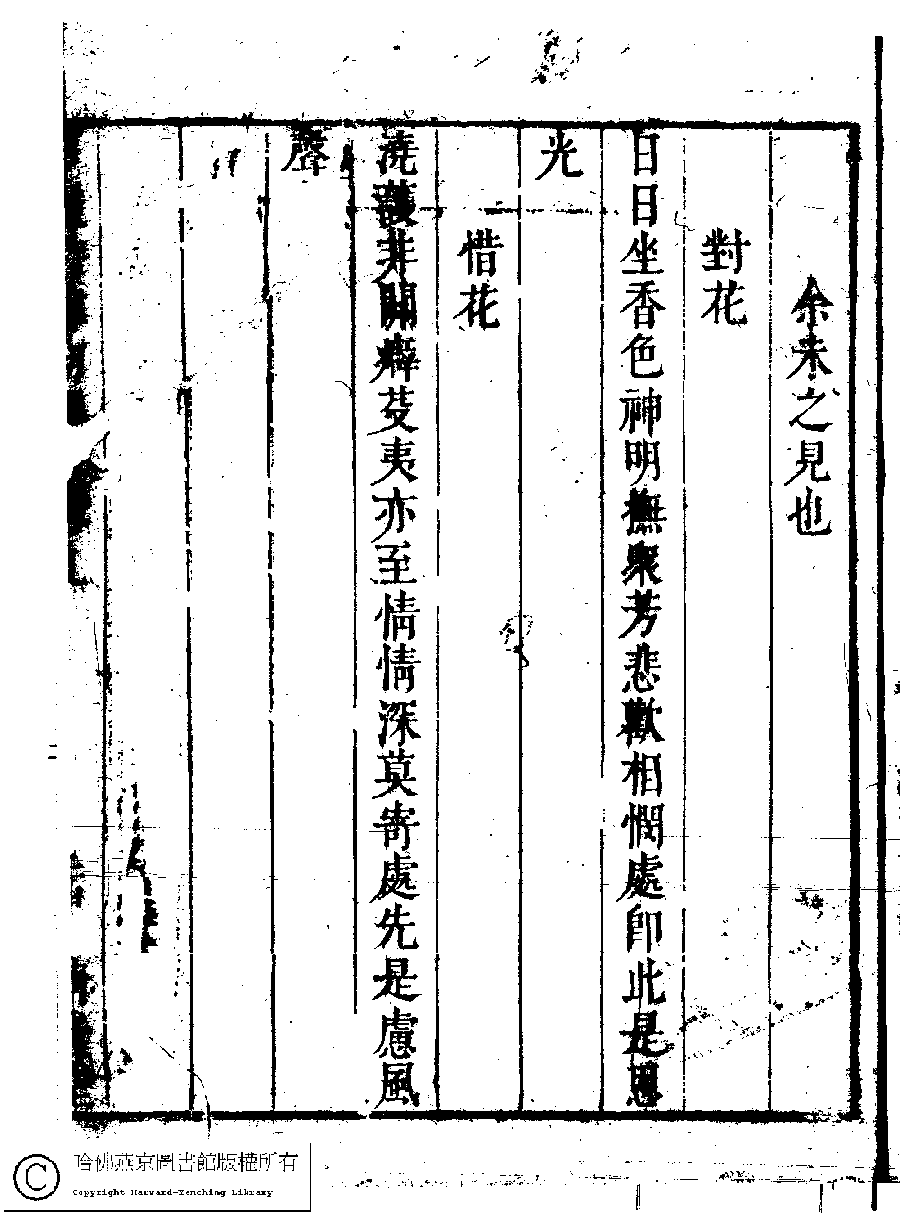 余未之見也
對花
日日坐香色神明撫衆芳悲歡相憫處即此是恩
光
惜花
澆護井關癖芟夷亦至情情深莫寄處先是慮風
聲
哈佛燕京圖書館版權所有
Copyright Harvard-Yenching Library